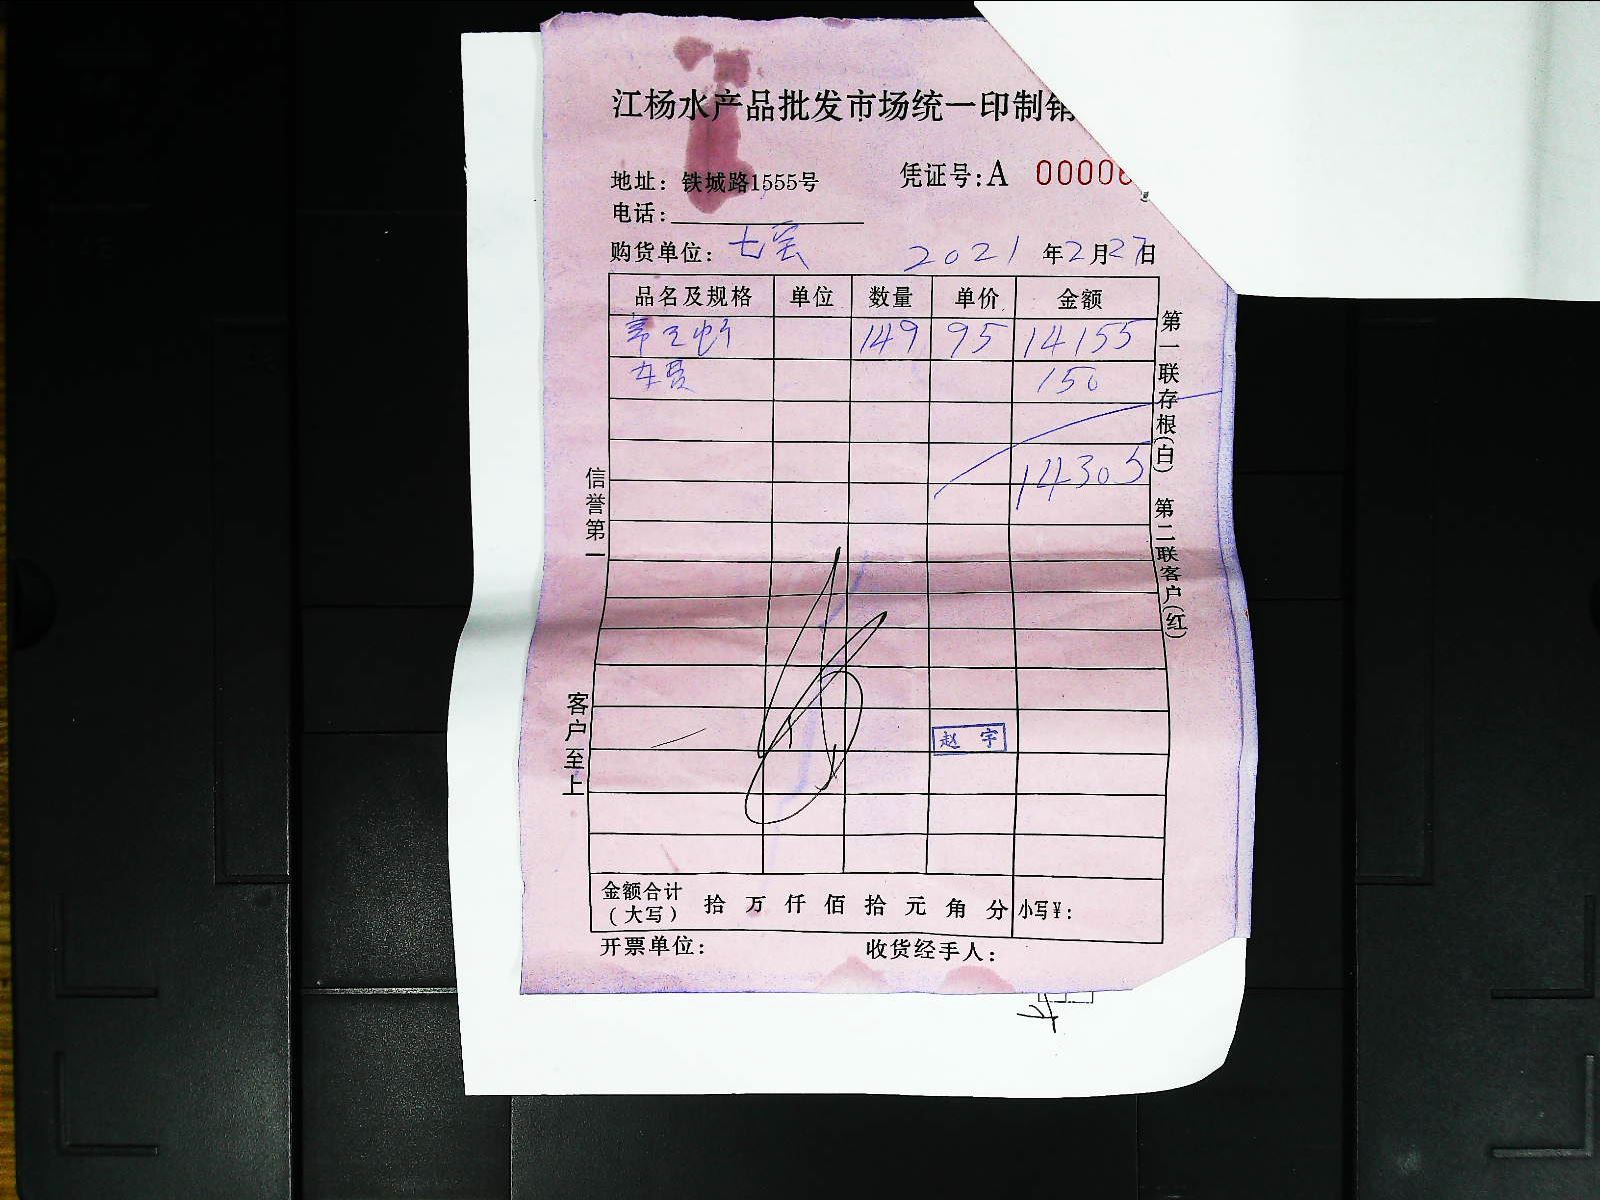 江杨水产品批发市场统一印制销
地址：铁城路1555号 凭证号：A 00006
电话：
购货单位：七宝 2021年2月27日
品名及规格 单位 数量 单价 金额
149 95 14155
车费 150
14305
信誉第一
客户至上
第一联存根(白) 第二联客户(红)
赵宇
金额合计(大写) 拾 万 仟 佰 拾 元 角 分 小写¥：
开票单位： 收货经手人：